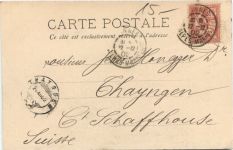 15-
CARTE POSTALE
Ce côté est exclusivement réservé à l'adresse
Monsieur J. Honegger Dr
Thayngen
Ct Schaffhouse
Suisse
THAYNGEN